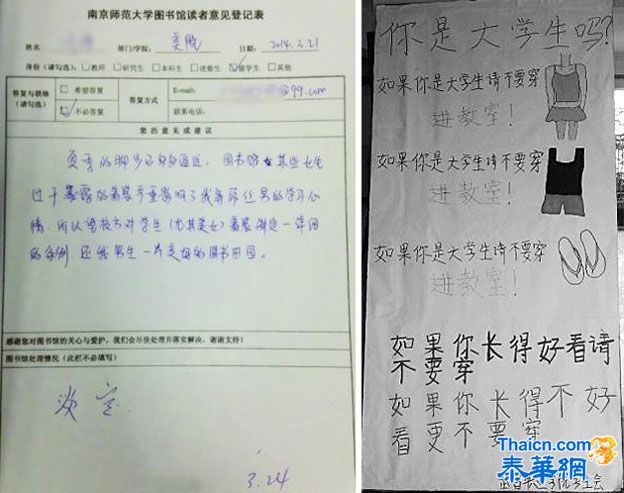 南京师范大学图书馆读者意见登记表
姓名
部门/学院: 美院
日期: 2014.3.21
身份（请勾选）: □教师 □研究生 □本科生 □进修生 ☑留学生 □其他
答复与联络（请勾选）
□ 希望答复
☑ 不必答复
答复方式
E-mail: @99.com
联系电话:
您的意见或建议
夏季的脚步已匆匆逼近，图书馆某些女生
过于暴露的着装严重影响了我等屌丝男的学习心
情，所以请校方对学生（尤其美女）着装制定一详细
的条例，还我男生一片美好的图书乐园。
感谢您对图书馆的关心与爱护，我们会尽快处理并落实解决，谢谢支持！
图书馆处理情况（此栏不必填写）
淡定
3.24
你是大学生吗?
如果你是大学生请不要穿
进教室！
如果你是大学生请不要穿
进教室！
如果你是大学生请不要穿
进教室！
如果你长得好看请
不要穿
如果你长得不好
看更不要穿
Thaicn.com
泰華網